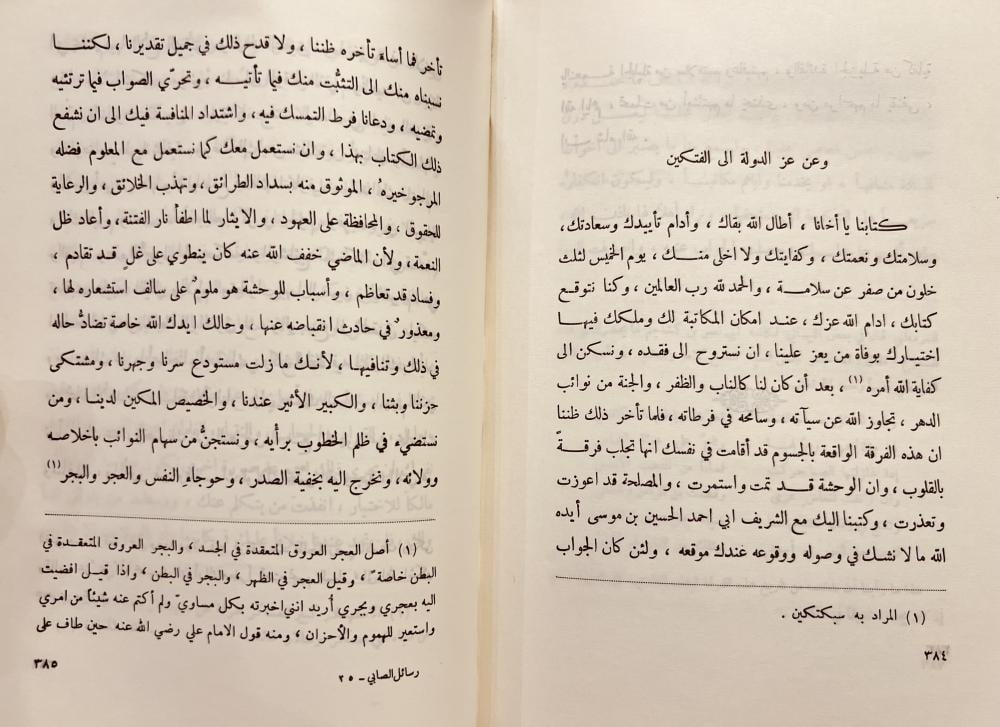 وعن عز الدولة الى الفتكين
كتابنا يا أخانا ، أطال الله بقاك ، وأدام تأييدك وسعادتك،
وسلامتك ونعمتك ، وكفايتك ولا اخلى منك ، يوم الخميس لثلث
خلون من صفر عن سلامة ، والحمد لله رب العالمين ، وكنا نتوقع
كتابك ، ادام الله عزك ، عند امكان المكاتبة لك وملكك فيها
اختيارك بوفاة من يعز علينا ، ان نستروح الى فقده ، ونسكن الى
كفاية الله أمره (١) ، بعد أن كان لنا كالناب والظفر ، والجنة من نوائب
الدهر ، تجاوز الله عن سيآته ، وسامحه في فرطاته ، فلما تأخر ذلك ظننا
ان هذه الفرقة الواقعة بالجسوم قد أقامت في نفسك انها تجلب فرقةً
بالقلوب ، وان الوحشة قد تمت واستمرت ، والمصلحة قد اعوزت
وتعذرت ، وكتبنا اليك مع الشريف ابي احمد الحسين بن موسى أيده
الله ما لا نشك في وصوله ووقوعه عندك موقعه ، ولئن كان الجواب
(١) المراد به سبكتكين .
٣٨٤
تأخر فما أساء تأخره ظننا ، ولا قدح ذلك في جميل تقديرنا ، لكننا
نسبناه منك الى التثبُّت منك فيما تأتيه ، وتحرّي الصواب فيما ترتئيه
وتمضيه ، ودعانا فرط التمسك فيه ، واشتداد المنافسة فيك الى ان نشفع
ذلك الكتاب بهذا ، وان نستعمل معك كما نستعمل مع المعلوم فضله
المرجو خيرهُ ، الموثوق منه بسداد الطرائق ، وتهذب الخلائق ، والرعاية
للحقوق ، والمحافظة على العهود ، والايثار لما اطفأ نار الفتنة ، وأعاد ظل
النعمة، ولأن الماضي خفف الله عنه كان ينطوي على غلٍ قد تقادم ،
وفساد قد تعاظم ، وأسباب للوحشة هو ملومٌ على سالف استشعاره لها ،
ومعذورٌ في حادث انقباضه عنها ، وحالك ايدك الله خاصة تضادُّ حاله
في ذلك وتنافيها ، لأنك ما زلت مستودع سرنا وجهرنا ، ومشتكى
حزننا وبثنا ، والكبير الأثير عندنا ، والخصيص المكين لدينا ، ومن
نستضيء في ظلم الخطوب برأيه ، ونستجنُّ من سهام النوائب باخلاصه
وولائه، ونخرج اليه بخفية الصدر ، وحوجاءِ النفس والعجر والبجر (١)
(١) أصل العجر العروق المتعقدة في الجسد ، والبجر العروق المتعقدة في
البطن خاصةً ، وقيل العجر في الظهر ، والبجر في البطن ، واذا قيل افضيت
اليه بعجري وبجري أُريد انني اخبرته بكل مساويّ ولم أكتم عنه شيئاً من امري
واستعير للهموم والأحزان ، ومنه قول الامام علي رضي الله عنه حين طاف على
رسائل الصابي – ٢٥
٣٨٥